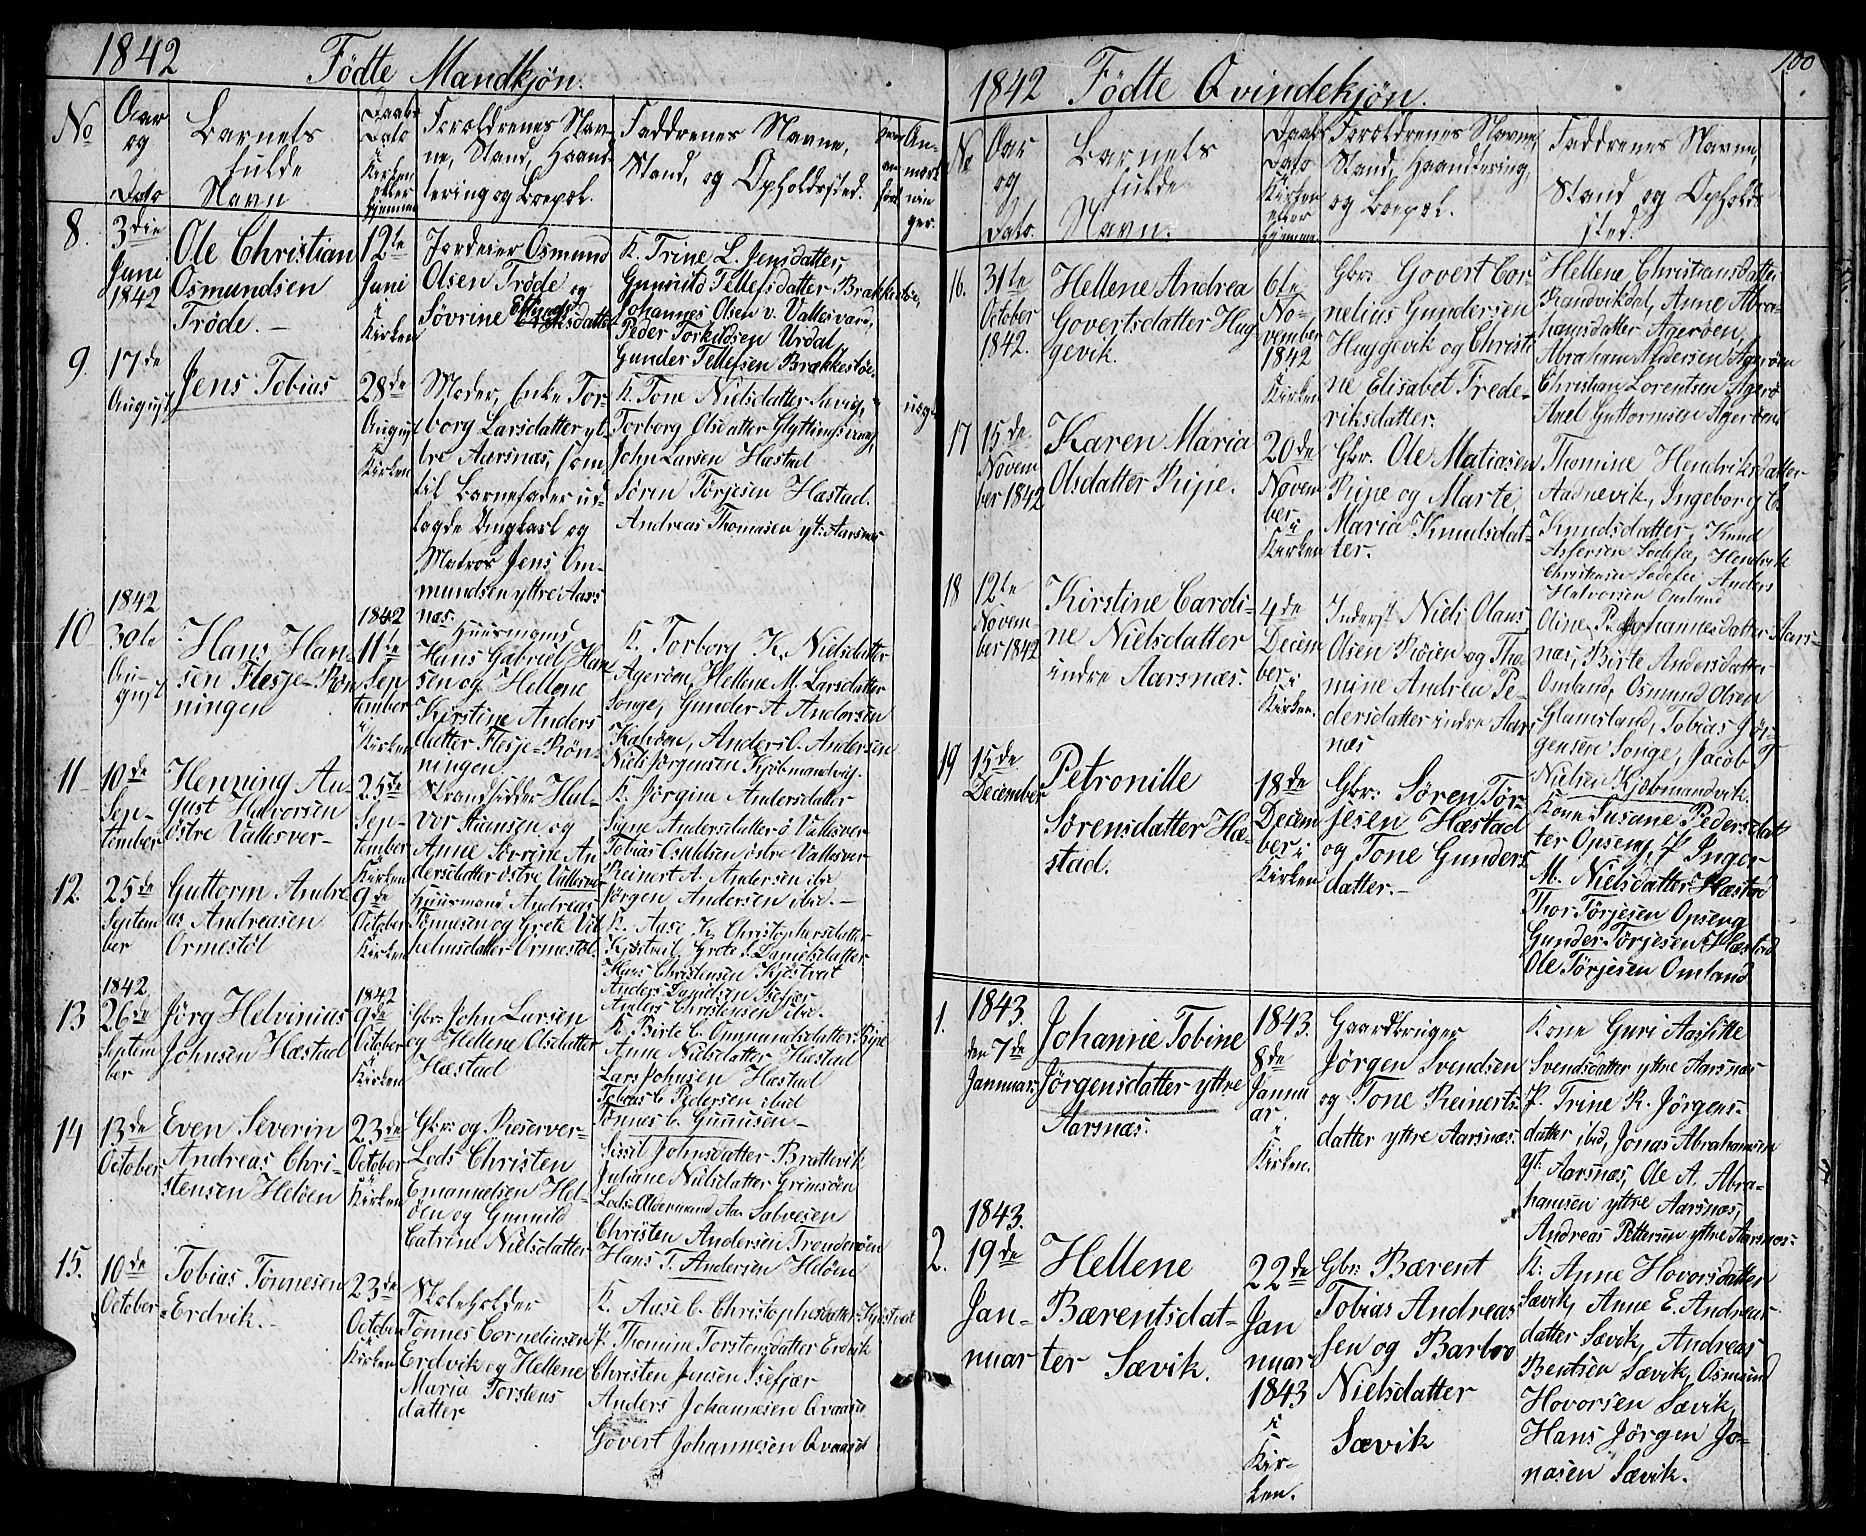 1842
Födte Mandkjön.
No
Aar
og
Dato
Barnets
fulde
Navn
Daabs
Dato
i
Kirken
eller
hjemme
Forældrenes Nav-
ne, Stand, Haand-
tering og Boepæl.
Faddrenes Navne,
Stand, og Opholdssted.
An-
mærk
nin
ger.
8.
3die
Juni
1842
Ole Christian
Osmundsen
Tröde. –
12te
Juni
i
Kirken
Jordeier Osmund
Olsen Tröde og
Sövrine
K. Trine L. Jensdatter,
Gunnild Tellefsdatter Brækkestöe,
Johannes Olsen v. Vallesværd,
Peder Torkildsen Urdal,
Gunder Tellefsen Brækkestöe.
9.
17de
August
Jens Tobias
28de
August
i
Kirken
Moder, Enke Tor-
borg Larsdatter yt-
tre Aarsnæs, som
til Barnefader ud-
lagde Ungkarl og
Matros Jens Om-
mundsen yttre Aars
næs.
K. Tone Nielsdatter
Torborg Olsdatter
John Larsen Hæstad
Sören Törjesen Hæstad.
Andreas Thomasen yt: Aarsnæs
uægte
10
1842
30te
Au-
gust
Hans Han-
sen Flesje-Rön
ningen
1842
11te
Sep
tember
i
Kirken
Huusmand
Hans Gabriel Han
sen og Hellene
Kirstine Anders
datter Flesje-Rön-
ningen
K. Torborg K. Nielsdatter
Ageröen, Hellene M. Larsdatter
Songe, Gunder A Andersen
Kalvöen, Anders C. Andersen
Niels Jörgensen Kjöbmandvig.
11
10de
Sep-
tember
Henning Au-
gust Halvorsen
östre Vallesver-
25de
Sep-
tember
i
Kirken
Strandsidder Hal-
vor Hansen og
Anne Sövrine An
dersdatter östre Vallesver
K. Jörgine Andersdatter
Signe Andersdatter ö Vallesver
Tobias östre Vallesver
Reinert A. Andersen ibd
Jörgen Andersen ibd. –
12.
25de
Septem
ber
Guttorm Andre
as Andreasen
Ormestöl
9de
October
i
Kirken
Huusmand Andreas
Tönnesen og Grete Vil
helmsdatter Ormestöl.
K. Aase K. Christophersdatter
Kjöstvit, Grete L Danielsdatter
Hans Christensen Kjöstvet
Anders Danielsen Isefjær
Anders Christensen ibd.
13
1842
26de
Septem
ber
Jörg Helvinius
Johnsen Hæstad
1842
9de
October
i
Kirken
Gbr: John Larsen
og Hellene Olsdatter
Hæstad
K. Birte C. Ommundsdatter Ripe
Anne Nielsdatter Hæstad
Lars Johnsen Hæstad
Tobias C. Pedersen ibid
Tönnes C. Gunnusen –
14
13de
October
Even Severin
Andreas Chri-
stensen Helöen
23de
October
i
Kirken
Gbr. og Reserver-
Lods Christen
Emanuelsen Hel-
öen og Gunnild
Catrine Nielsdatter
Sissel Johnsdatter Brattevik
Juliane Nielsdatter Grimsöen
Lods-Oldermand Aa. Salvesen
Christen Andersen Tronderöen
Hans T. Andersen Helöen
15.
10de
October
Tobias Tönnesen
Erdvik. –
23de
October
i
Kirken
Skoleholder
Tönnes Corneliusen
Erdvik og Hellene
Maria Torstens
datter
K. Aase C. Christophsdatter Kjöstvet
P. Thomine Torstensdatter Erdvik
Christen Jensen Isefjær
Anders Johannesen Qvaase
Govert Johannesen Qvaase
100
1842 Födte Qvindekjön.
No
Aar
og
Dato.
Barnets
fulde
Navn.
Daabs
Dato
i
Kirken
eller
hjemme
Forældrenes Navne,
Stand, Haandtering,
og Boepæl.
Faddrenes Navne,
Stand og Opholds
sted.
16.
31te
October
1842.
Hellene Andrea
Govertsdatter Hug
gevik.
6te
No-
vember
1842
i
Kirken
Gbr: Govert Cor-
nelius Gundersen
Huggevik og Christi
ne Elisabet Frede-
riksdatter.
Hellene Christiansdatter
Randvikdal, Anne Abra-
hamsdatter Ageröen,
Abraham Pedersen Ageröen
Christian Lorentsen Agerö
Axel Guttormsen Ageröen
17
15de
Novem
ber 1842
Karen Maria
Olsdatter Ripe.
20de
Novem
ber
i
Kirken
Gbr. Ole Matiasen
Ripe og Marte
Maria Knudsdat-
ter.
Thomine Hendriksdatter
Audnevik, Ingeborg C.
Knudsdatter, Knud
Asfersen Lodefæ, Hendrik
Christensen Lodefæ, Anders
Halvorsen Omland
18
12te
Novem-
ber 1842
Kirstine Cardi-
ne Nielsdatter
indre Aarsnæs.
4de
Decem
ber i
Kirken.
Inderst Niels Olaus
Olsen Röien og Tho
mine Andrea Pe-
dersdatter indre Aars
næs
Oline P. Johannesdatter Aars-
næs, Birte Andersdatter
Omland, Osmund Olsen
Glamsland, Tobias Jör-
gensen Songe, Jacob
Nielsen Kjöbmandvik.
19
15de
December
Petronille
Sörensdatter Hæ-
stad.
18de
Decem
ber i
Kirken
Gbr: Sören Tör-
jesen Hæstad
og Tone Gunders
datter. –
Kone Susane Pedersdat
ter Opseng, P Inger
M. Nielsdatter Hæstad
Thor Törjesen Opseng
Gunder Törjesen Hæstad
Ole Törjesen Omland
1.
1843
den 7de
Januar
Johanne Tobine
Jörgensdatter yttre
Aarsnæs.
1843.
8de
Janu
ar.
i
Kirken.
Gaardbruger
Jörgen Svendsen
og Tone Reinerts
datter yttre Aarsnæs.
Kone Guri Aaslitte
Svendsdatter yttre Aarsnæs
P. Trine R. Jörgens-
datter ibd, Jonas Abrahamsen
yt: Aarsnæs, Ole A. Abra-
hamsen yttre Aarsnæs,
Andreas Pettersen yttre Aarsnæs.
2.
1843.
19de
Jan-
nuar
Hellene
Bærentsdat-
ter Sævik.
22de
Jan
nuar
1843
i
Kir-
ken.
Gbr: Bærent
Tobias Andreas
sen og Barbro
Nielsdatter
Sævik
K: Anne Hovorsdatter
Sævik, Anne E. Andreas
datter Sævik, Andreas
Bentsen Sævik, Osmund
Hovorsen Sævik,
Hans Jörgen Jo-
nasen Sævik.